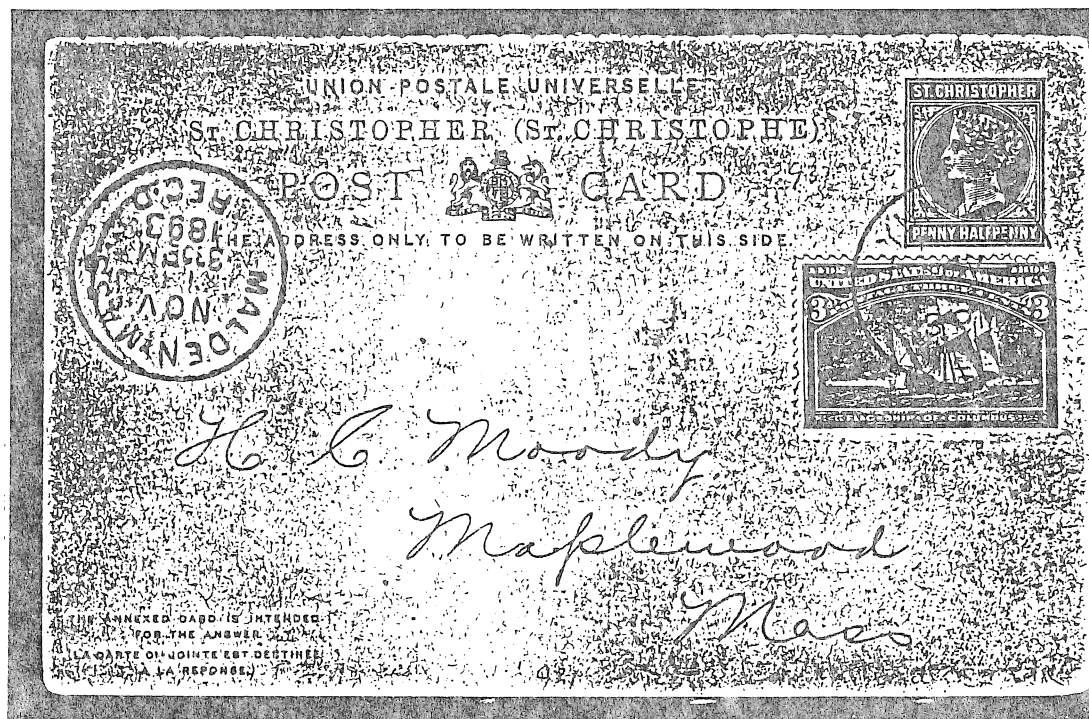 UNION POSTALE UNIVERSELLE
ST. CHRISTOPHER (ST. CHRISTOPHE)
POST CARD
THE ADDRESS ONLY TO BE WRITTEN ON THIS SIDE.
ST. CHRISTOPHER
PENNY HALFPENNY
UNITED STATES OF AMERICA
3 3
FLAG SHIP OF COLUMBUS
MALDEN, MASS.
NOV
1
1893
REC'D.
H. C. Moody
Maplewood
Mass
THE ANNEXED CARD IS INTENDED
FOR THE ANSWER
LA CARTE CI-JOINTE EST DESTINÉE
À LA REPONSE.